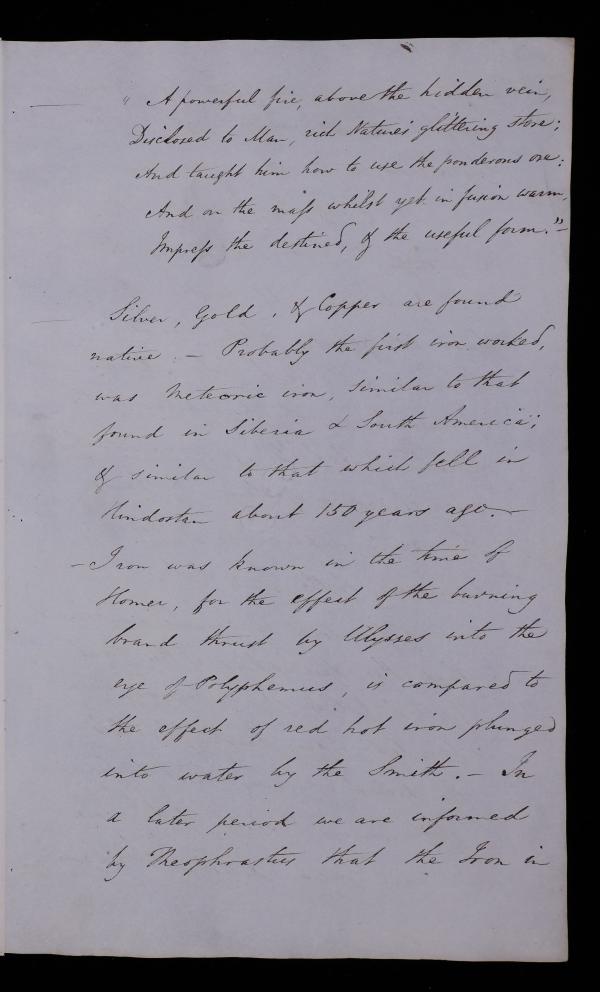 " A powerful fire, above the hidden vein,
Disclosed to Man, rich Nature's glittering store;
And taught him how to use the ponderous ore:
And on the mass whilst yet in fusion warm,
Impress the destined, & the useful form." –
Silver, Gold, & Copper are found
native. – Probably the first iron worked,
was Meteoric iron, similar to that
found in Siberia & South America;
& similar to that which fell in
Hindostan about 150 years ago. –
– Iron was known in the time of
Homer, for the effect of the burning
brand thrust by Ulysses into the
eye of Polyphemus, is compared to
the effect of red hot iron plunged
into water by the Smith. – In
a later period we are informed
by Theophrastus that the Iron in